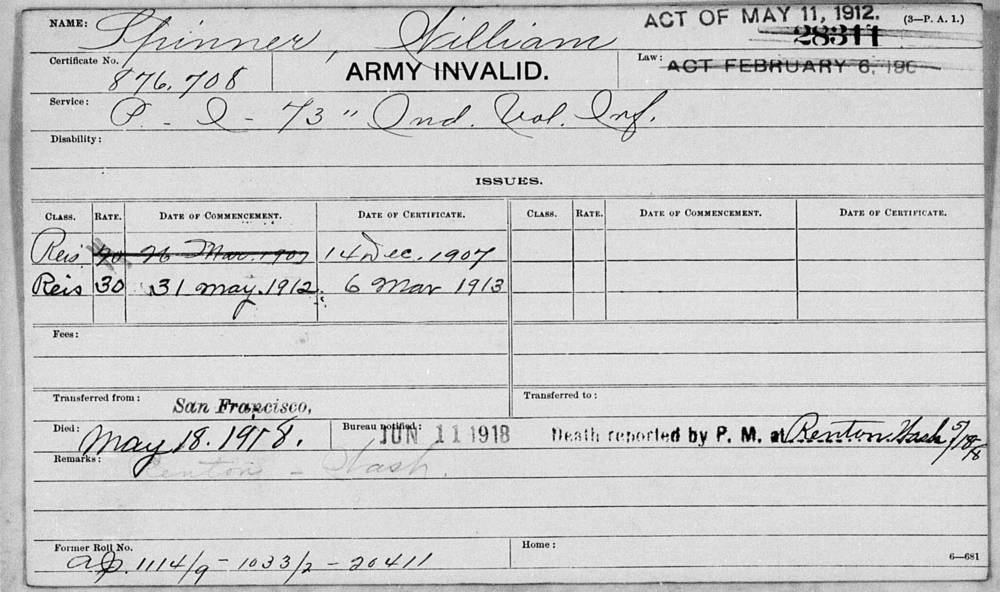 NAME: Spinner, William ACT OF MAY 11, 1912. (3—P. A. 1.)
28311
Certificate No. 876,708 ARMY INVALID. Law: ACT FEBRUARY 6, 190
Service: P - I - 73" Ind. Vol. Inf.
Disability:
ISSUES.
CLASS. RATE. DATE OF COMMENCEMENT. DATE OF CERTIFICATE. CLASS. RATE. DATE OF COMMENCEMENT. DATE OF CERTIFICATE.
Reis 20 26 Mar. 1907 14 Dec. 1907
Reis 30 31 May. 1912. 6 Mar 1913
Fees:
Transferred from: San Francisco, Transferred to:
Died: May 18. 1918. Bureau notified: JUN 11 1918 Death reported by P. M. at Renton. Wash 5/18/8
Remarks: Renton - Wash.
Former Roll No. Home:
1114/9 - 1033/2 - 20411 6—681